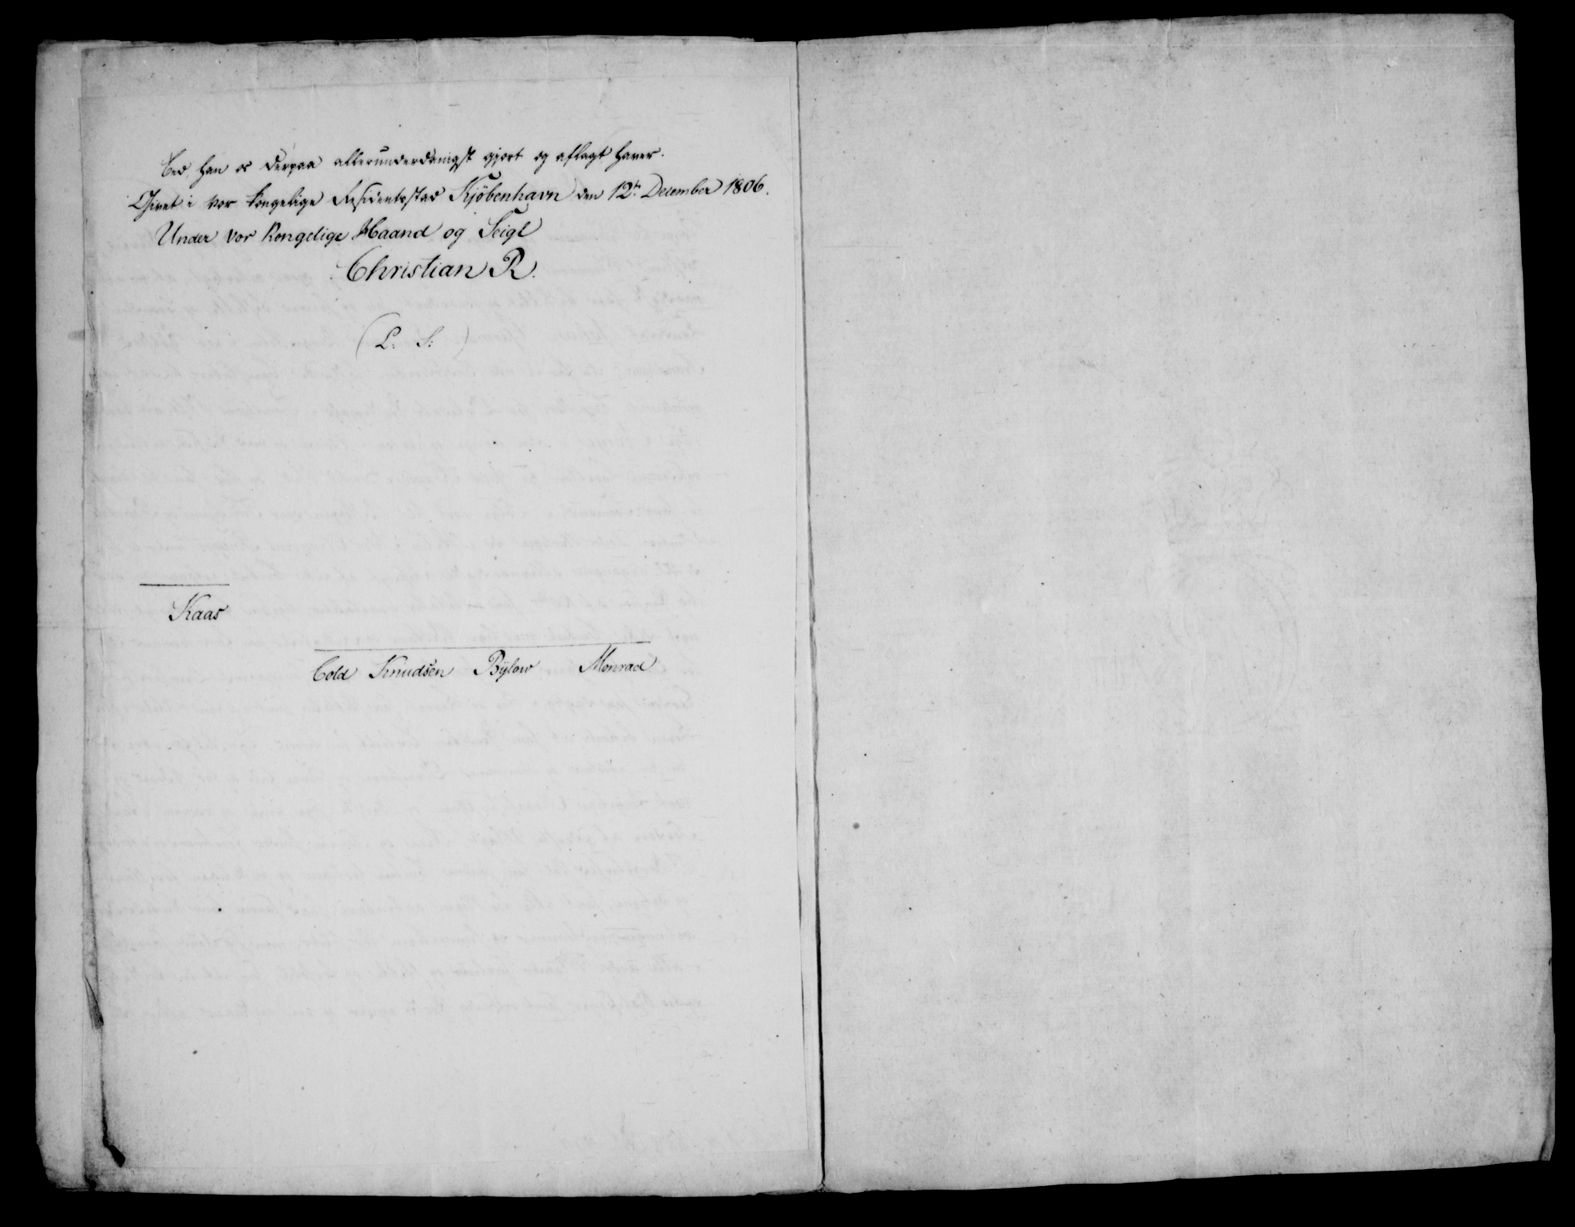 Eed han os derpaa allerunderdanigst gjort og aflagt haver.
Givet i vor kongelige Residentsstad Kjöbenhavn den 12te December 1806.
Under vor Kongelige Haand og Seigl
Christian R.
(L. S.)
Kaas
Cold Knudsen Bÿlow Monrad